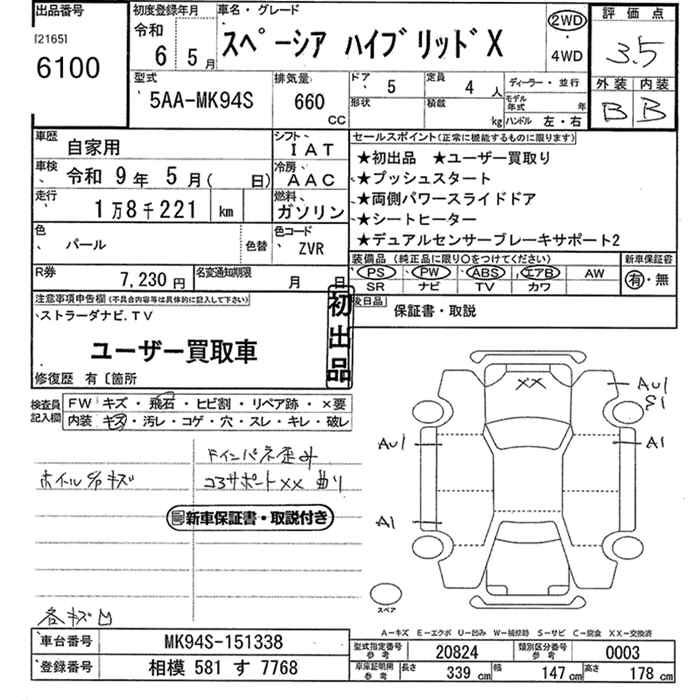 出品番号
[2165]
6100
初度登録年月
令和
6 5月
車名・グレード
スペーシア ハイブリッドX
2WD
・
4WD
評価点
3.5
外装 内装
B B
型式
5AA-MK94S
排気量
660
CC
ドア 5
定員 4人
形状
積載 kg
ディーラー・並行
モデル年式 年
ハンドル 左・右
車歴 自家用
シフト IAT
車検 令和 9年 5月( 日)
冷房 AAC
走行 1万8千221 km
燃料 ガソリン
色 パール
色替
色コード ZVR
R券 7,230円
名変通知期限 月 日
セールスポイント(正常に機能するものに限ります)
★初出品 ★ユーザー買取り
★プッシュスタート
★両側パワースライドドア
★シートヒーター
★デュアルセンサーブレーキサポート2
装備品(純正品に限り〇をつけてください)
PS PW ABS エアB AW
SR ナビ TV カワ
新車保証書
有・無
後日品
保証書・取説
注意事項申告欄(不具合内容等は具体的に記入して下さい)
ストラーダナビ.TV
ユーザー買取車
初出品
修復歴 有〔箇所
検査員記入欄
FW キズ・飛石・ヒビ割・リペア跡・×要
内装 キズ・汚レ・コゲ・穴・スレ・キレ・破レ
ホイルキズ
コアサポートXX 曲り
新車保証書・取説付き
各キズ凹
XX
AU1
E1
AU1
A1
A1
スペア
A-キズ E-エクボ U-凹み W-補修跡 S-サビ C-腐食 XX-交換済
車台番号 MK94S-151338
登録番号 相模 581 す 7768
型式指定番号 参考 20824
類別区分番号 参考 0003
車庫証明用 参考
長さ 339cm
幅 147cm
高さ 178cm